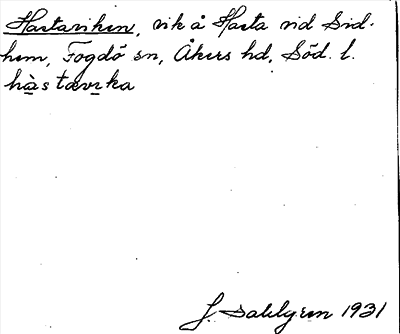 Hartaviken, vik å Harta vid Sid-
hem, Fogdö sn, Åkers hd, Söd. l.
hàstavika
J. Sahlgren 1931